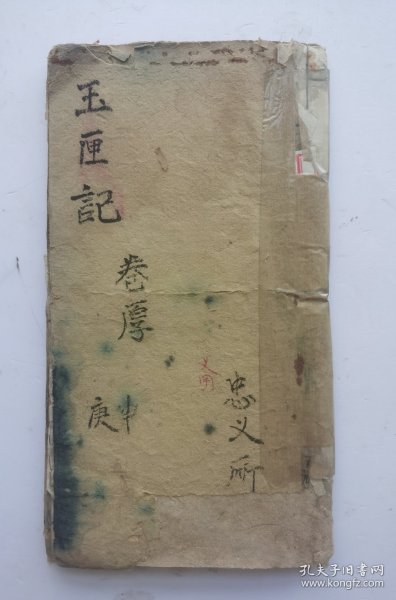 玉匣記
卷厚
庚申
忠义所
孔夫子旧书网
www.kongfz.com